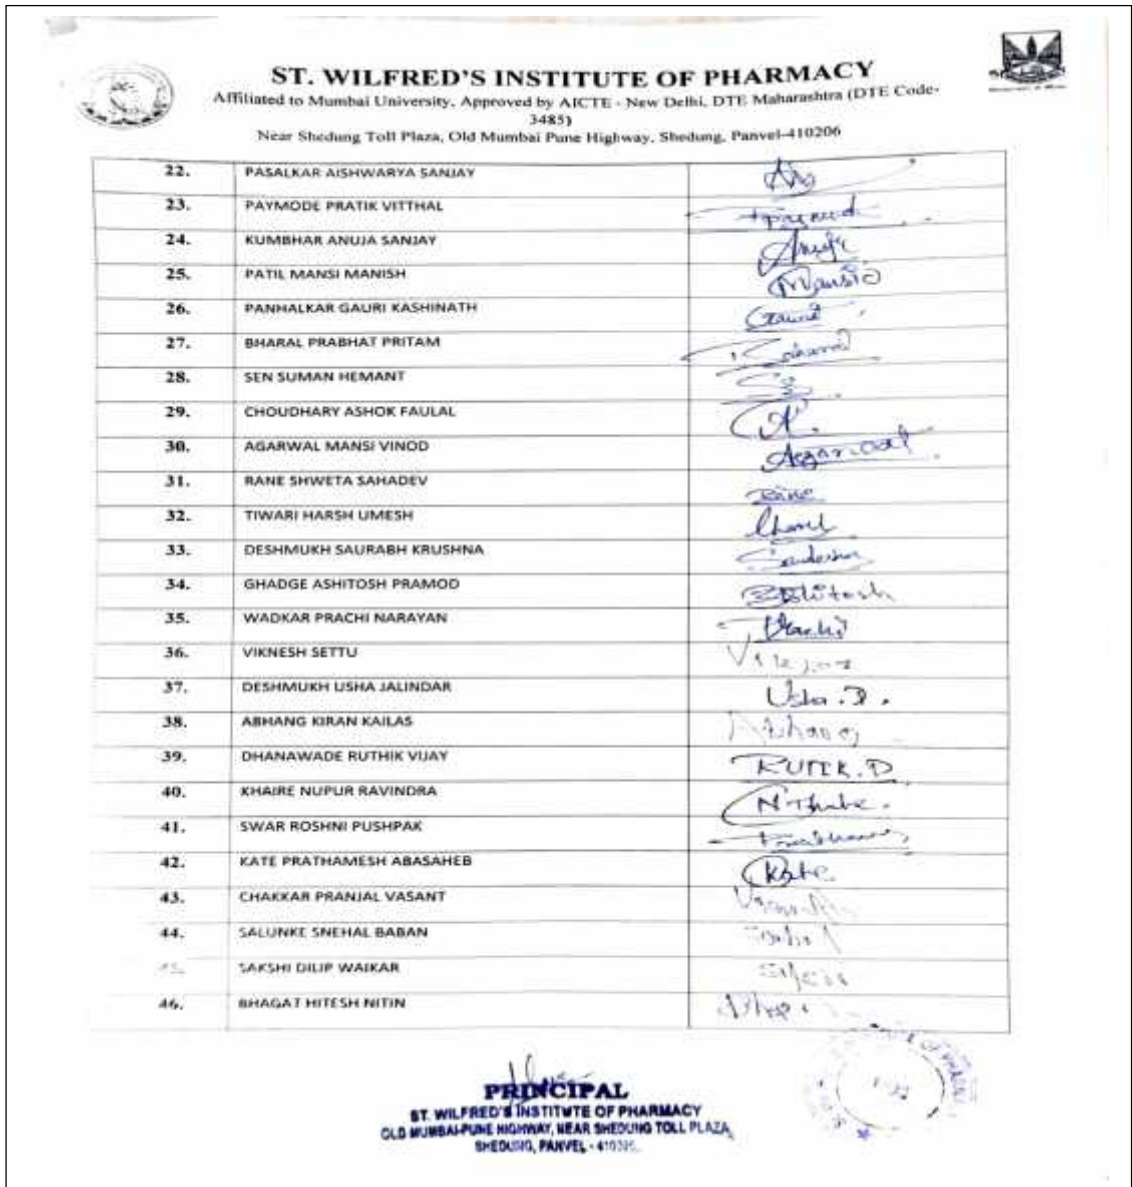 ST. WILFRED'S INSTITUTE OF PHARMACY
Affiliated to Mumbai University, Approved by AICTE - New Delhi, DTE Maharashtra (DTE Code-
3485)
Near Shedung Toll Plaza, Old Mumbai Pune Highway, Shedung, Panvel-410206
22. PASALKAR AISHWARYA SANJAY
23. PAYMODE PRATIK VITTHAL
24. KUMBHAR ANUJA SANJAY Anuja
25. PATIL MANSI MANISH Mansi
26. PANHALKAR GAURI KASHINATH Gauri
27. BHARAL PRABHAT PRITAM
28. SEN SUMAN HEMANT
29. CHOUDHARY ASHOK FAULAL
30. AGARWAL MANSI VINOD Agarwal
31. RANE SHWETA SAHADEV Rane
32. TIWARI HARSH UMESH
33. DESHMUKH SAURABH KRUSHNA
34. GHADGE ASHITOSH PRAMOD Ashitosh
35. WADKAR PRACHI NARAYAN Prachi
36. VIKNESH SETTU
37. DESHMUKH USHA JALINDAR Usha.D.
38. ABHANG KIRAN KAILAS Abhang
39. DHANAWADE RUTHIK VIJAY RUTIK.D
40. KHAIRE NUPUR RAVINDRA
41. SWAR ROSHNI PUSHPAK
42. KATE PRATHAMESH ABASAHEB Kate
43. CHAKKAR PRANJAL VASANT
44. SALUNKE SNEHAL BABAN
45. SAKSHI DILIP WAIKAR
46. BHAGAT HITESH NITIN
PRINCIPAL
ST. WILFRED'S INSTITUTE OF PHARMACY
OLD MUMBAI-PUNE HIGHWAY, NEAR SHEDUNG TOLL PLAZA,
SHEDUNG, PANVEL - 410206.